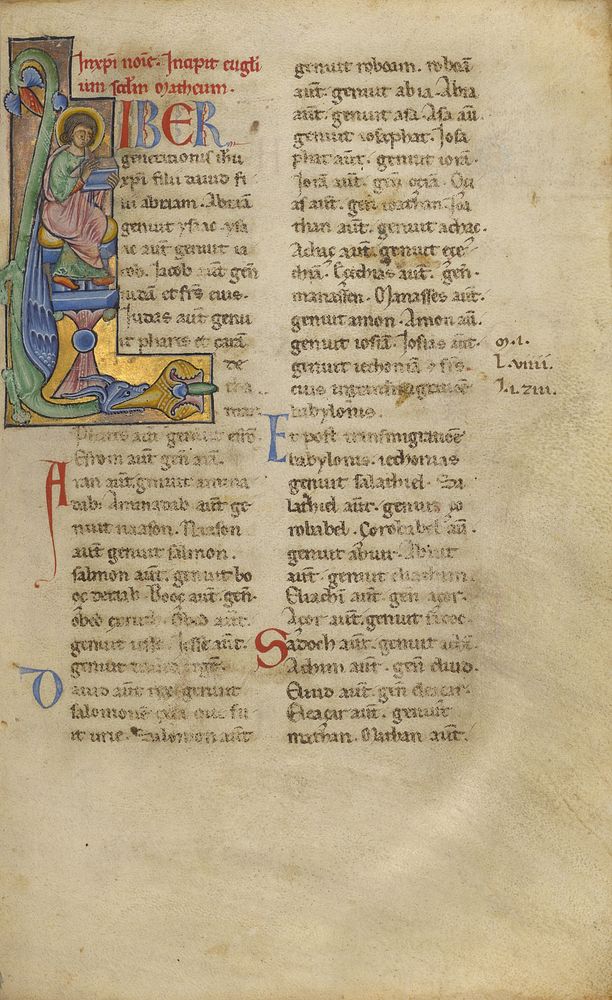 In xpi noıe. Incipit eugli
um scdm Matheum.
LIBER
generationis ihu
xpi filii dauid fi
lii abraam. Abraā
genuit ysaac. ysa
ac autē genuit ia
cob. Iacob aut gen
iudā et frs eius.
Iudas aut genu
it phares et zarā
de
tha
mar.
Phares aut genuit esrō.
Esrom aut gen arā.
Aran aut genuit amina
dab. Aminadab aut ge
nuit naason. Naason
aut genuit salmon.
salmon aut genuit bo
oç de raab. Booç aut gen
obed
genuit iesse. Iesse aut.
genuit
Dauid aut rex genuit
salomonē ex ea que fu
it urie. Salomon aut
genuit roboam. roboā
aut. genuit abia. Abia
aut. genuit asa. Asa aū.
genuit iosaphat. Iosa
phat aut. genuit iorā.
Iorā aut. gen oçiā. Oçi
as aut. gen ioathan. Ioa
than aut. genuit achaç.
Achaç aut. genuit eçe
chiā. Eçechias aut. gen.
manassen. Manasses aut.
genuit amon. Amon aū.
genuit iosiā. Iosias aut.
genuit iechoniā & frs.
eius in transmigratione
babylonis.
Et post transmigratiōe
babylonis. iechonias
genuit salathiel. Sa
lathiel aut. genuit ço
robabel. Çorobabel aū.
genuit abiut. Abiut
aut. genuit eliachim.
Eliachi aut gen açor.
Açor aut. genuit sadoc.
Sadoch aut. genuit achī.
Achim aut. gen eliud.
Eliud aut. gen eleaçar.
Eleaçar aut. genuit
mathan. Mathan aut.
M. I.
L. VIIII.
I. LXIII.